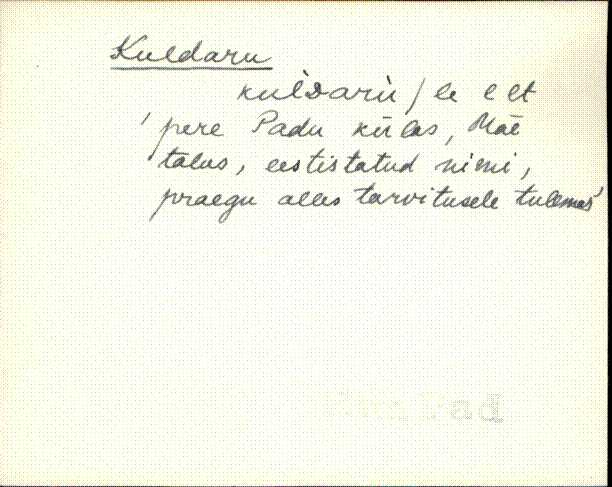 Kuldaru
kuldaru / le e et
' pere Padu külas, Mäe
talus, eestistatud nimi,
praegu alles tarvitusele tulemas'
Pad